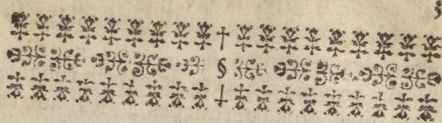 †
§
†